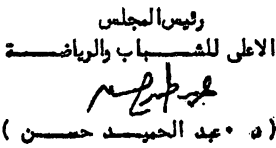 رئيس المجلس
الاعلى للشباب والرياضة
( د ٠ عبد الحميد حسن )